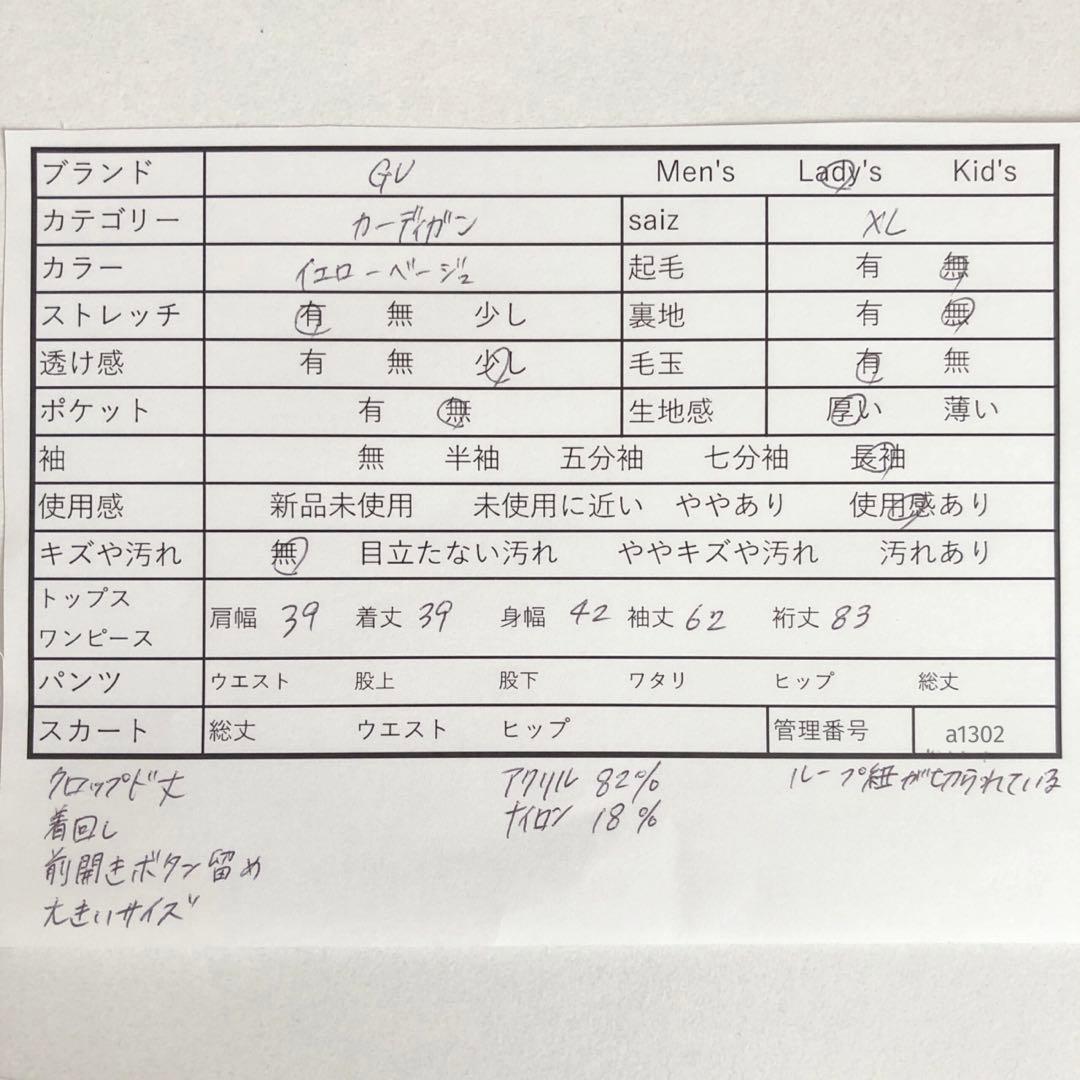 ブランド GU Men's Lady's Kid's
カテゴリー カーディガン saiz XL
カラー イエローベージュ 起毛 有 無
ストレッチ 有 無 少し 裏地 有 無
透け感 有 無 少し 毛玉 有 無
ポケット 有 無 生地感 厚い 薄い
袖 無 半袖 五分袖 七分袖 長袖
使用感 新品未使用 未使用に近い ややあり 使用感あり
キズや汚れ 無 目立たない汚れ ややキズや汚れ 汚れあり
トップス
ワンピース 肩幅 39 着丈 39 身幅 42 袖丈 62 裄丈 83
パンツ ウエスト 股上 股下 ワタリ ヒップ 総丈
スカート 総丈 ウエスト ヒップ 管理番号 a1302
クロップド丈 アクリル 82% ループ紐が切られている
着回し ナイロン 18%
前開きボタン留め
大きいサイズ